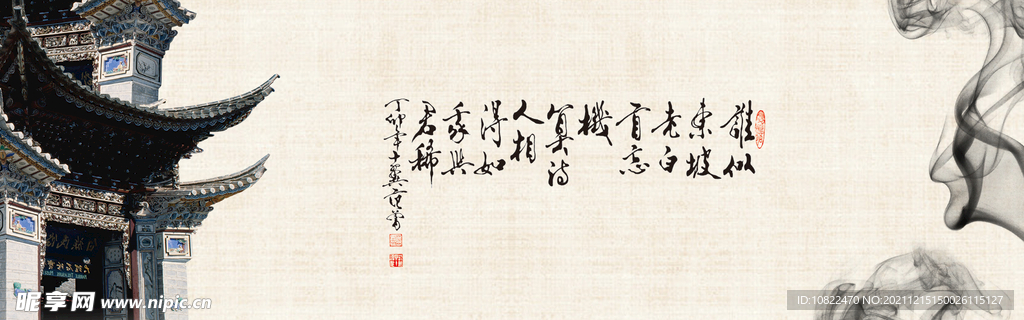 誰似
東坡
老白
首忘
機
算詩
人相
得如
我與
君稀
丁卯年十
昵享网 www.nipic.cn
ID:10822470 NO:20211215150026115127